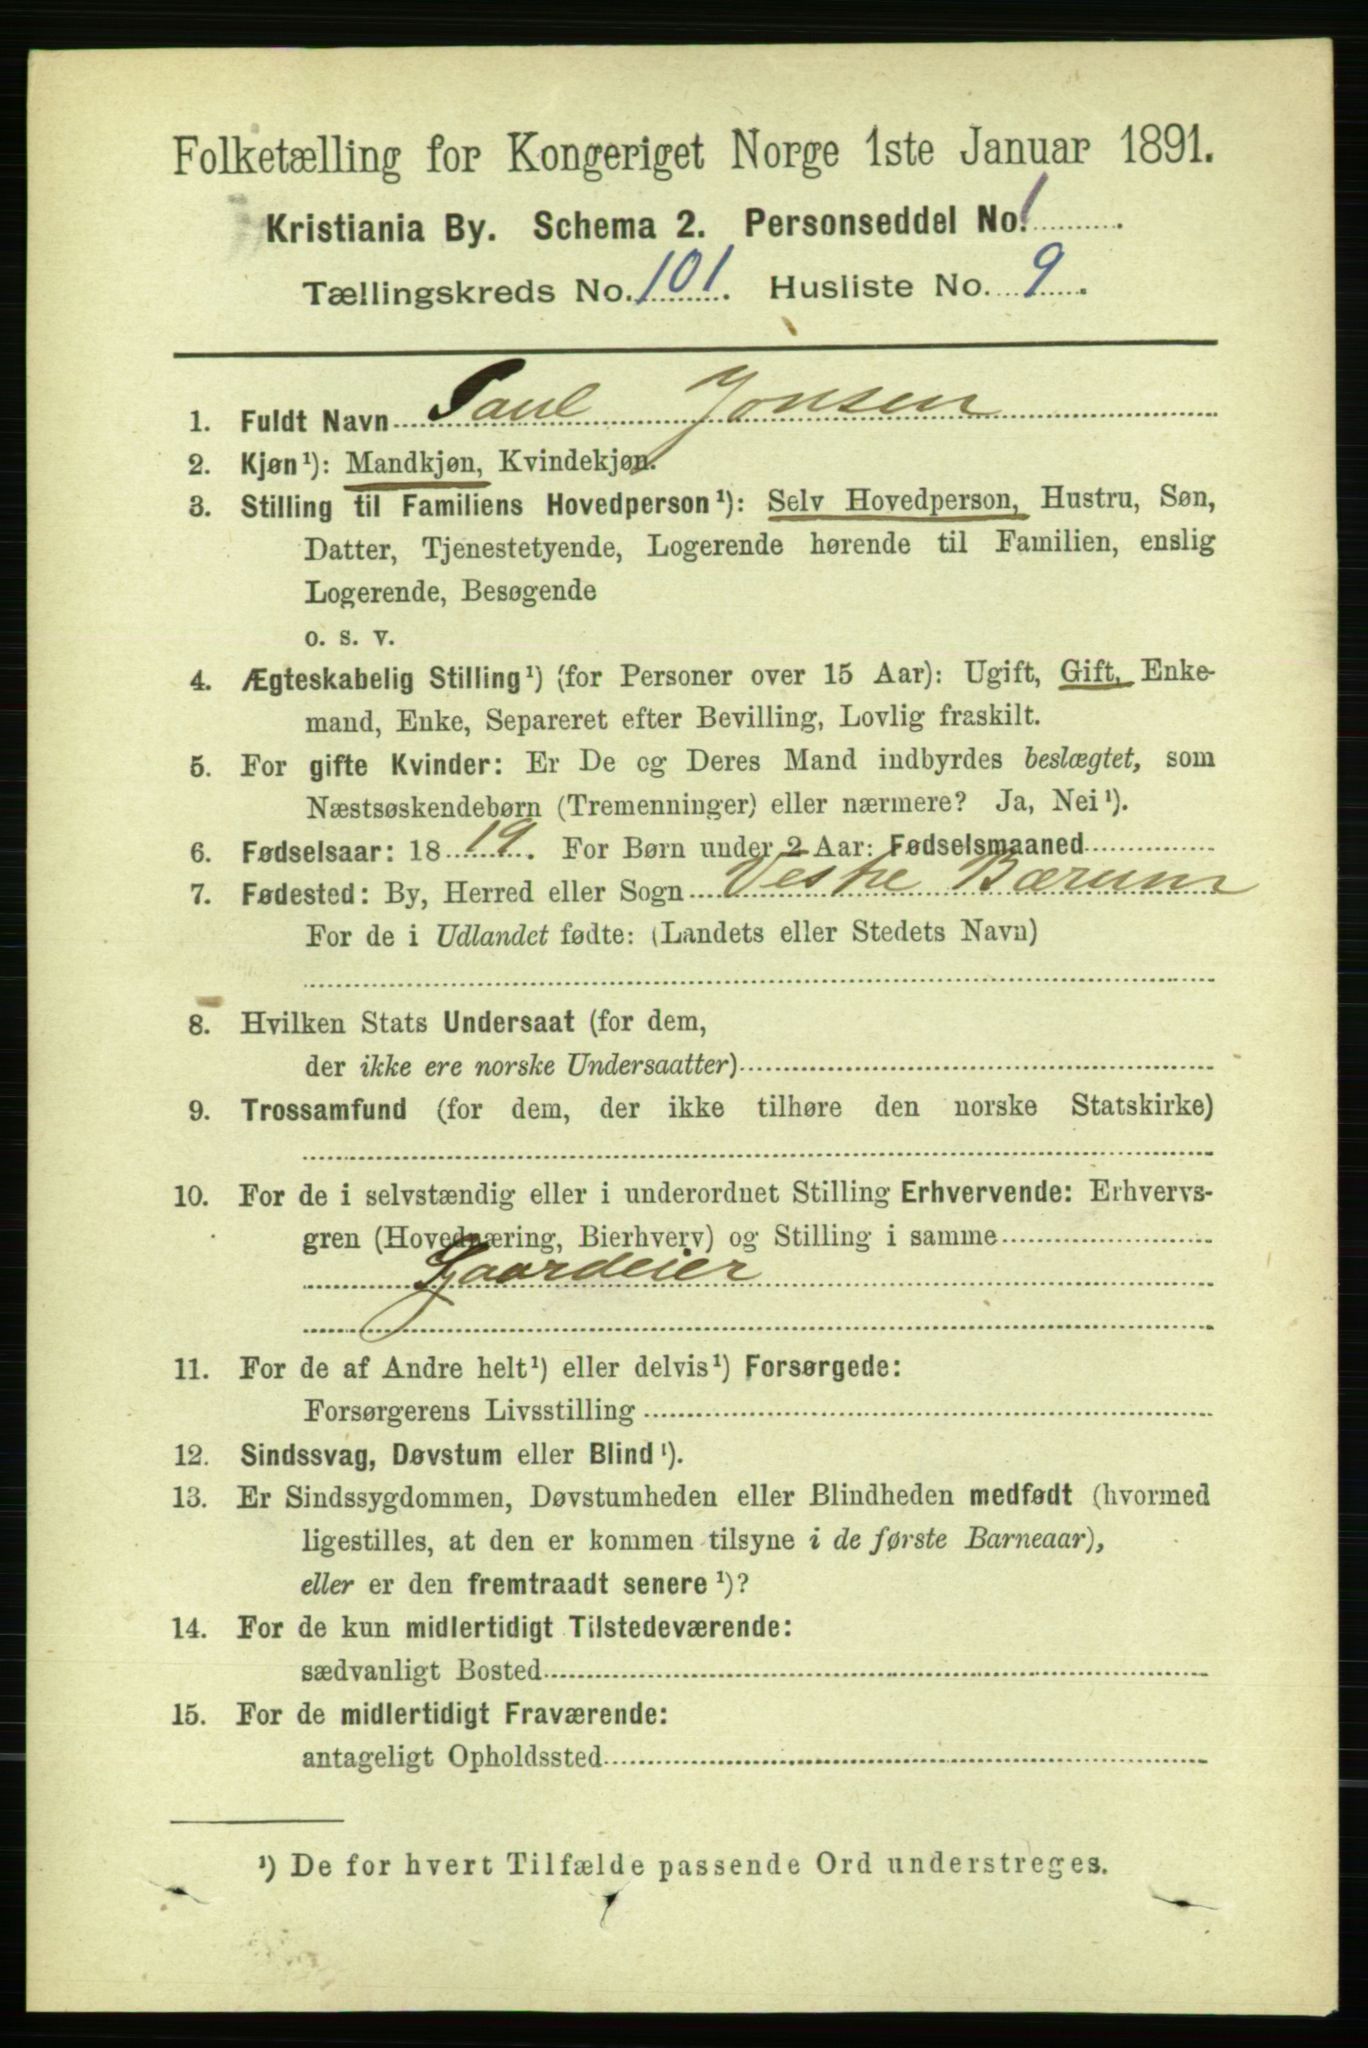 Folketælling for Kongeriget Norge 1ste Januar 1891.
Kristiania By. Schema 2. Personseddel No. 1
Tællingskreds No. 101. Husliste No. 9.
1. Fuldt Navn Paul Jonsen
2. Kjøn¹): Mandkjøn, Kvindekjøn.
3. Stilling til Familiens Hovedperson¹): Selv Hovedperson, Hustru, Søn,
Datter, Tjenestetyende, Logerende hørende til Familien, enslig
Logerende, Besøgende
o. s. v.
4. Ægteskabelig Stilling¹) (for Personer over 15 Aar): Ugift, Gift, Enke-
mand, Enke, Separeret efter Bevilling, Lovlig fraskilt.
5. For gifte Kvinder: Er De og Deres Mand indbyrdes beslægtet, som
Næstsøskendebørn (Tremenninger) eller nærmere? Ja, Nei¹).
6. Fødselsaar: 1819. For Børn under 2 Aar: Fødselsmaaned
7. Fødested: By, Herred eller Sogn Vestre Bærum
For de i Udlandet fødte: (Landets eller Stedets Navn)
8. Hvilken Stats Undersaat (for dem,
der ikke ere norske Undersaatter)
9. Trossamfund (for dem, der ikke tilhøre den norske Statskirke)
10. For de i selvstændig eller i underordnet Stilling Erhvervende: Erhvervs-
gren (Hovednæring, Bierhverv) og Stilling i samme
Gaardeier
11. For de af Andre helt¹) eller delvis¹) Forsørgede:
Forsørgerens Livsstilling
12. Sindssvag, Døvstum eller Blind¹).
13. Er Sindssygdommen, Døvstumheden eller Blindheden medfødt (hvormed
ligestilles, at den er kommen tilsyne i de første Barneaar),
eller er den fremtraadt senere¹)?
14. For de kun midlertidigt Tilstedeværende:
sædvanligt Bosted
15. For de midlertidigt Fraværende:
antageligt Opholdssted
¹) De for hvert Tilfælde passende Ord understreges.